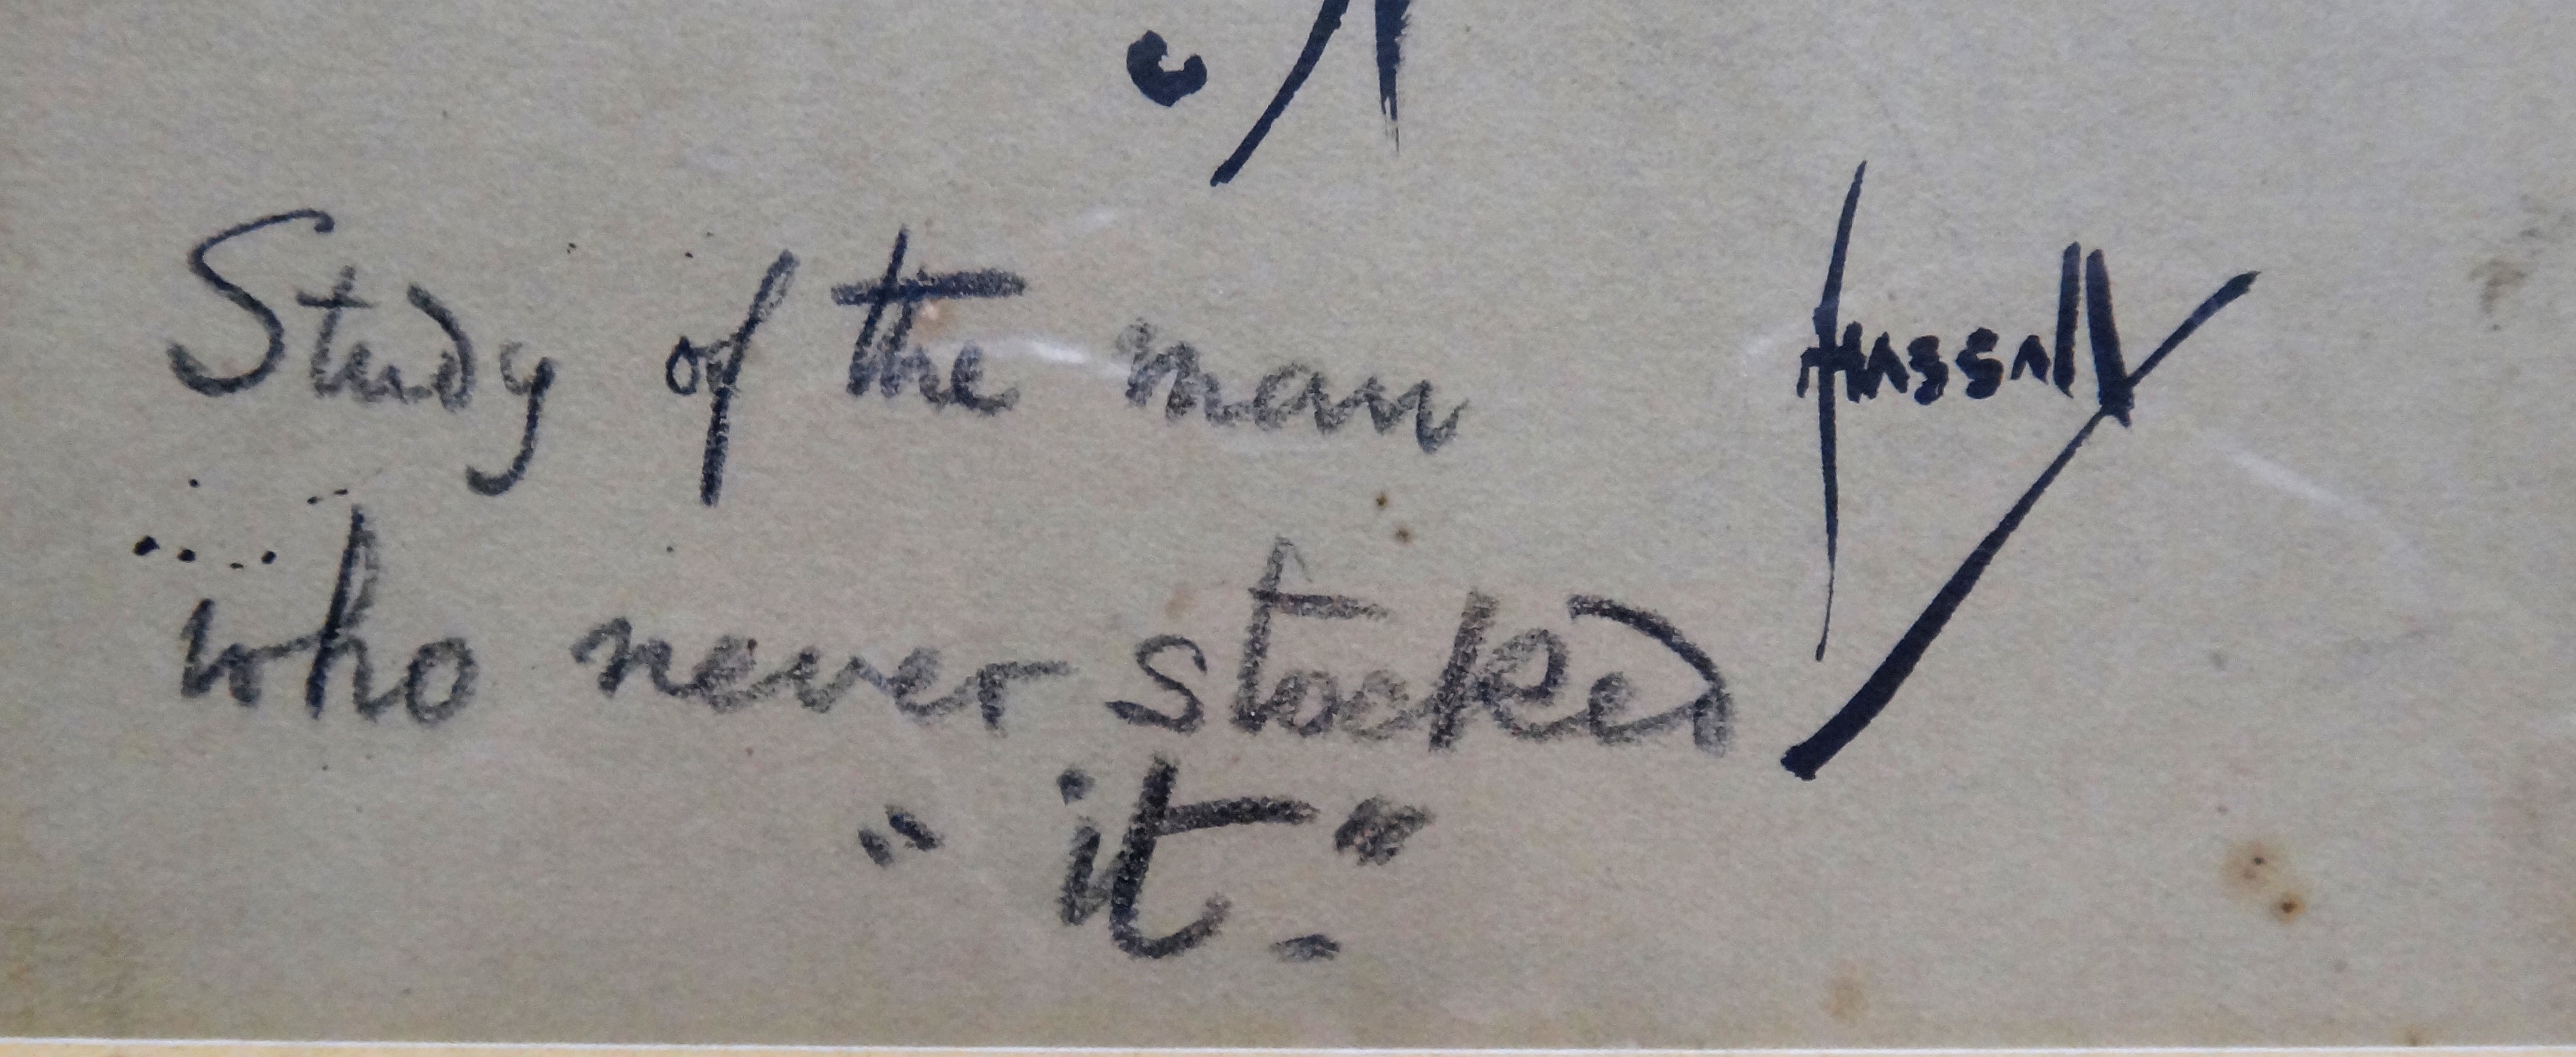 Study of the man
who never stocked
"it".
Hassall